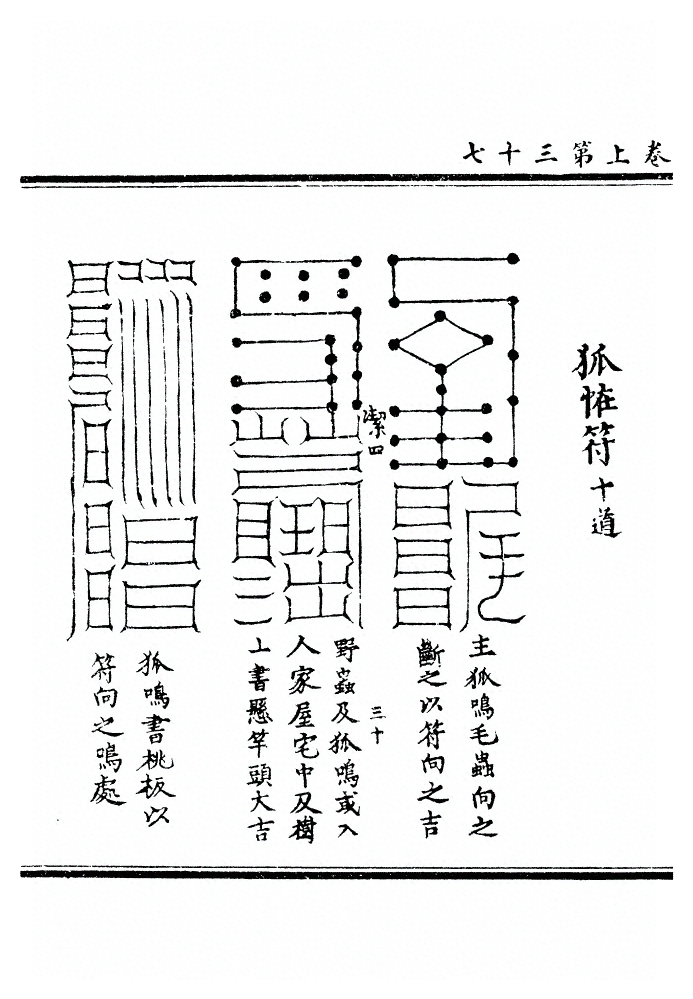 卷上第三十七
狐恠符十道
主狐鳴毛蟲向之
斷之以符向之吉
潔四
三十
野蟲及狐鳴或入
人家屋宅中及樹
上書懸竿頭大吉
狐鳴書桃板以
符向之鳴處